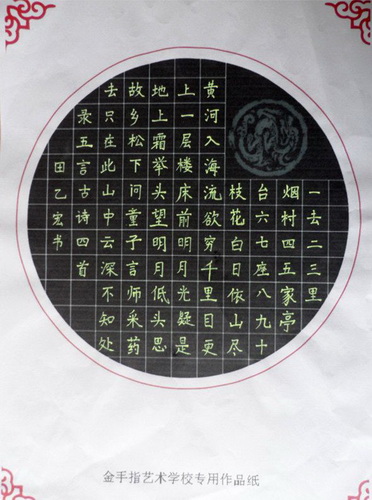 一去二三里
烟村四五家亭
台六七座八九十
枝花白日依山尽
黄河入海流欲穷千里目更
上一层楼床前明月光疑是
地上霜举头望明月低头思
故乡松下问童子言师采药
去只在此山中云深不知处
录五言古诗四首
田乙宏书
金手指艺术学校专用作品纸